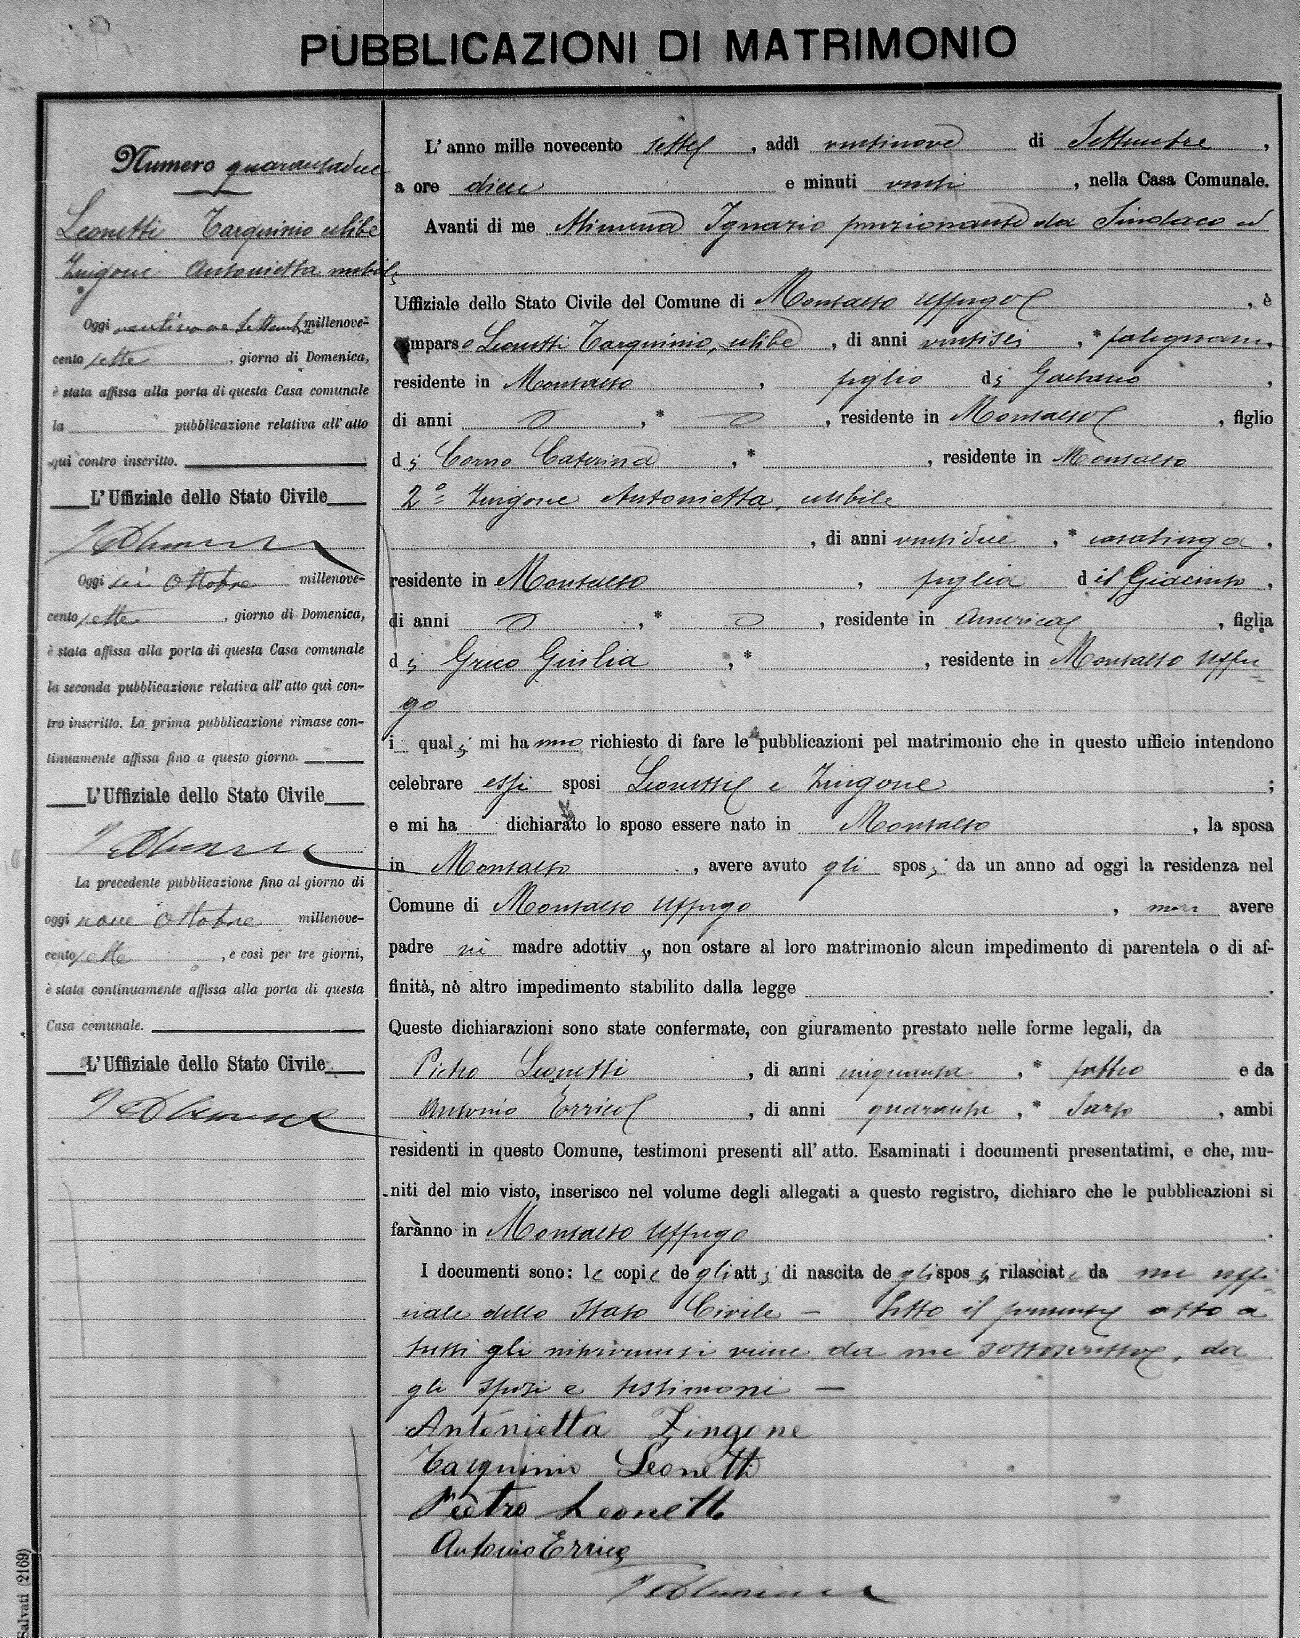 PUBBLICAZIONI DI MATRIMONIO
Numero quarantadue
Leonetti Tarquinio celibe
Zingone Antonietta nubile
Oggi ventinove Settembre millenove-
cento sette, giorno di Domenica,
è stata affissa alla porta di questa Casa comunale
la pubblicazione relativa all'atto
qui contro inscritto.
L'Uffiziale dello Stato Civile
Oggi sei Ottobre millenove-
cento sette, giorno di Domenica,
è stata affissa alla porta di questa Casa comunale
la seconda pubblicazione relativa all'atto qui con-
tro inscritto. La prima pubblicazione rimase con-
tinuamente affissa fino a questo giorno.
L'Uffiziale dello Stato Civile
La precedente pubblicazione fino al giorno di
oggi nove Ottobre millenove-
cento sette, e così per tre giorni,
è stata continuamente affissa alla porta di questa
Casa comunale.
L'Uffiziale dello Stato Civile
Salvati (2169)
L'anno mille novecento sette, addì ventinove di Settembre,
a ore dieci e minuti venti, nella Casa Comunale.
Avanti di me Alimena Ignazio funzionante da Sindaco ed
Uffiziale dello Stato Civile del Comune di Montalto Uffugo, è
comparso Leonetti Tarquinio, celibe, di anni ventisei, * falegname,
residente in Montalto, figlio di Gaetano,
di anni , * , residente in Montalto, figlio
di Corno Caterina, * , residente in Montalto
2º= Zingone Antonietta, nubile
, di anni ventidue, * casalinga,
residente in Montalto, figlia di Giacinto,
di anni , * , residente in America, figlia
di Greco Giulia, * , residente in Montalto Uffu=
go
i quali mi hanno richiesto di fare le pubblicazioni pel matrimonio che in questo ufficio intendono
celebrare essi sposi Leonetti e Zingone;
e mi ha dichiarato lo sposo essere nato in Montalto, la sposa
in Montalto, avere avuto gli sposi da un anno ad oggi la residenza nel
Comune di Montalto Uffugo, non avere
padre nè madre adottivi, non ostare al loro matrimonio alcun impedimento di parentela o di af-
finità, nè altro impedimento stabilito dalla legge.
Queste dichiarazioni sono state confermate, con giuramento prestato nelle forme legali, da
Pietro Leonetti, di anni cinquanta, * fabbro e da
Antonio Errico, di anni quaranta, * Sarto, ambi
residenti in questo Comune, testimoni presenti all'atto. Esaminati i documenti presentatimi, e che, mu-
niti del mio visto, inserisco nel volume degli allegati a questo registro, dichiaro che le pubblicazioni si
faranno in Montalto Uffugo.
I documenti sono: le copie degli atti di nascita degli sposi rilasciate da me uffi-
ciale dello Stato Civile — Letto il presente atto a
tutti gli intervenuti viene da me sottoscritto, da
gli sposi e testimoni —
Antonietta Zingone
Tarquinio Leonetti
Pietro Leonetti
Antonio Errico